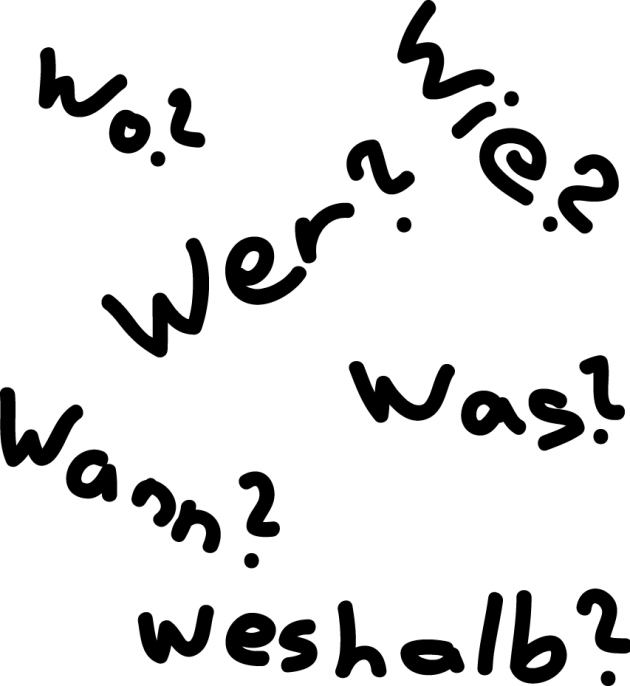 Wo?
Wie?
Wer?
Was?
Wann?
weshalb?